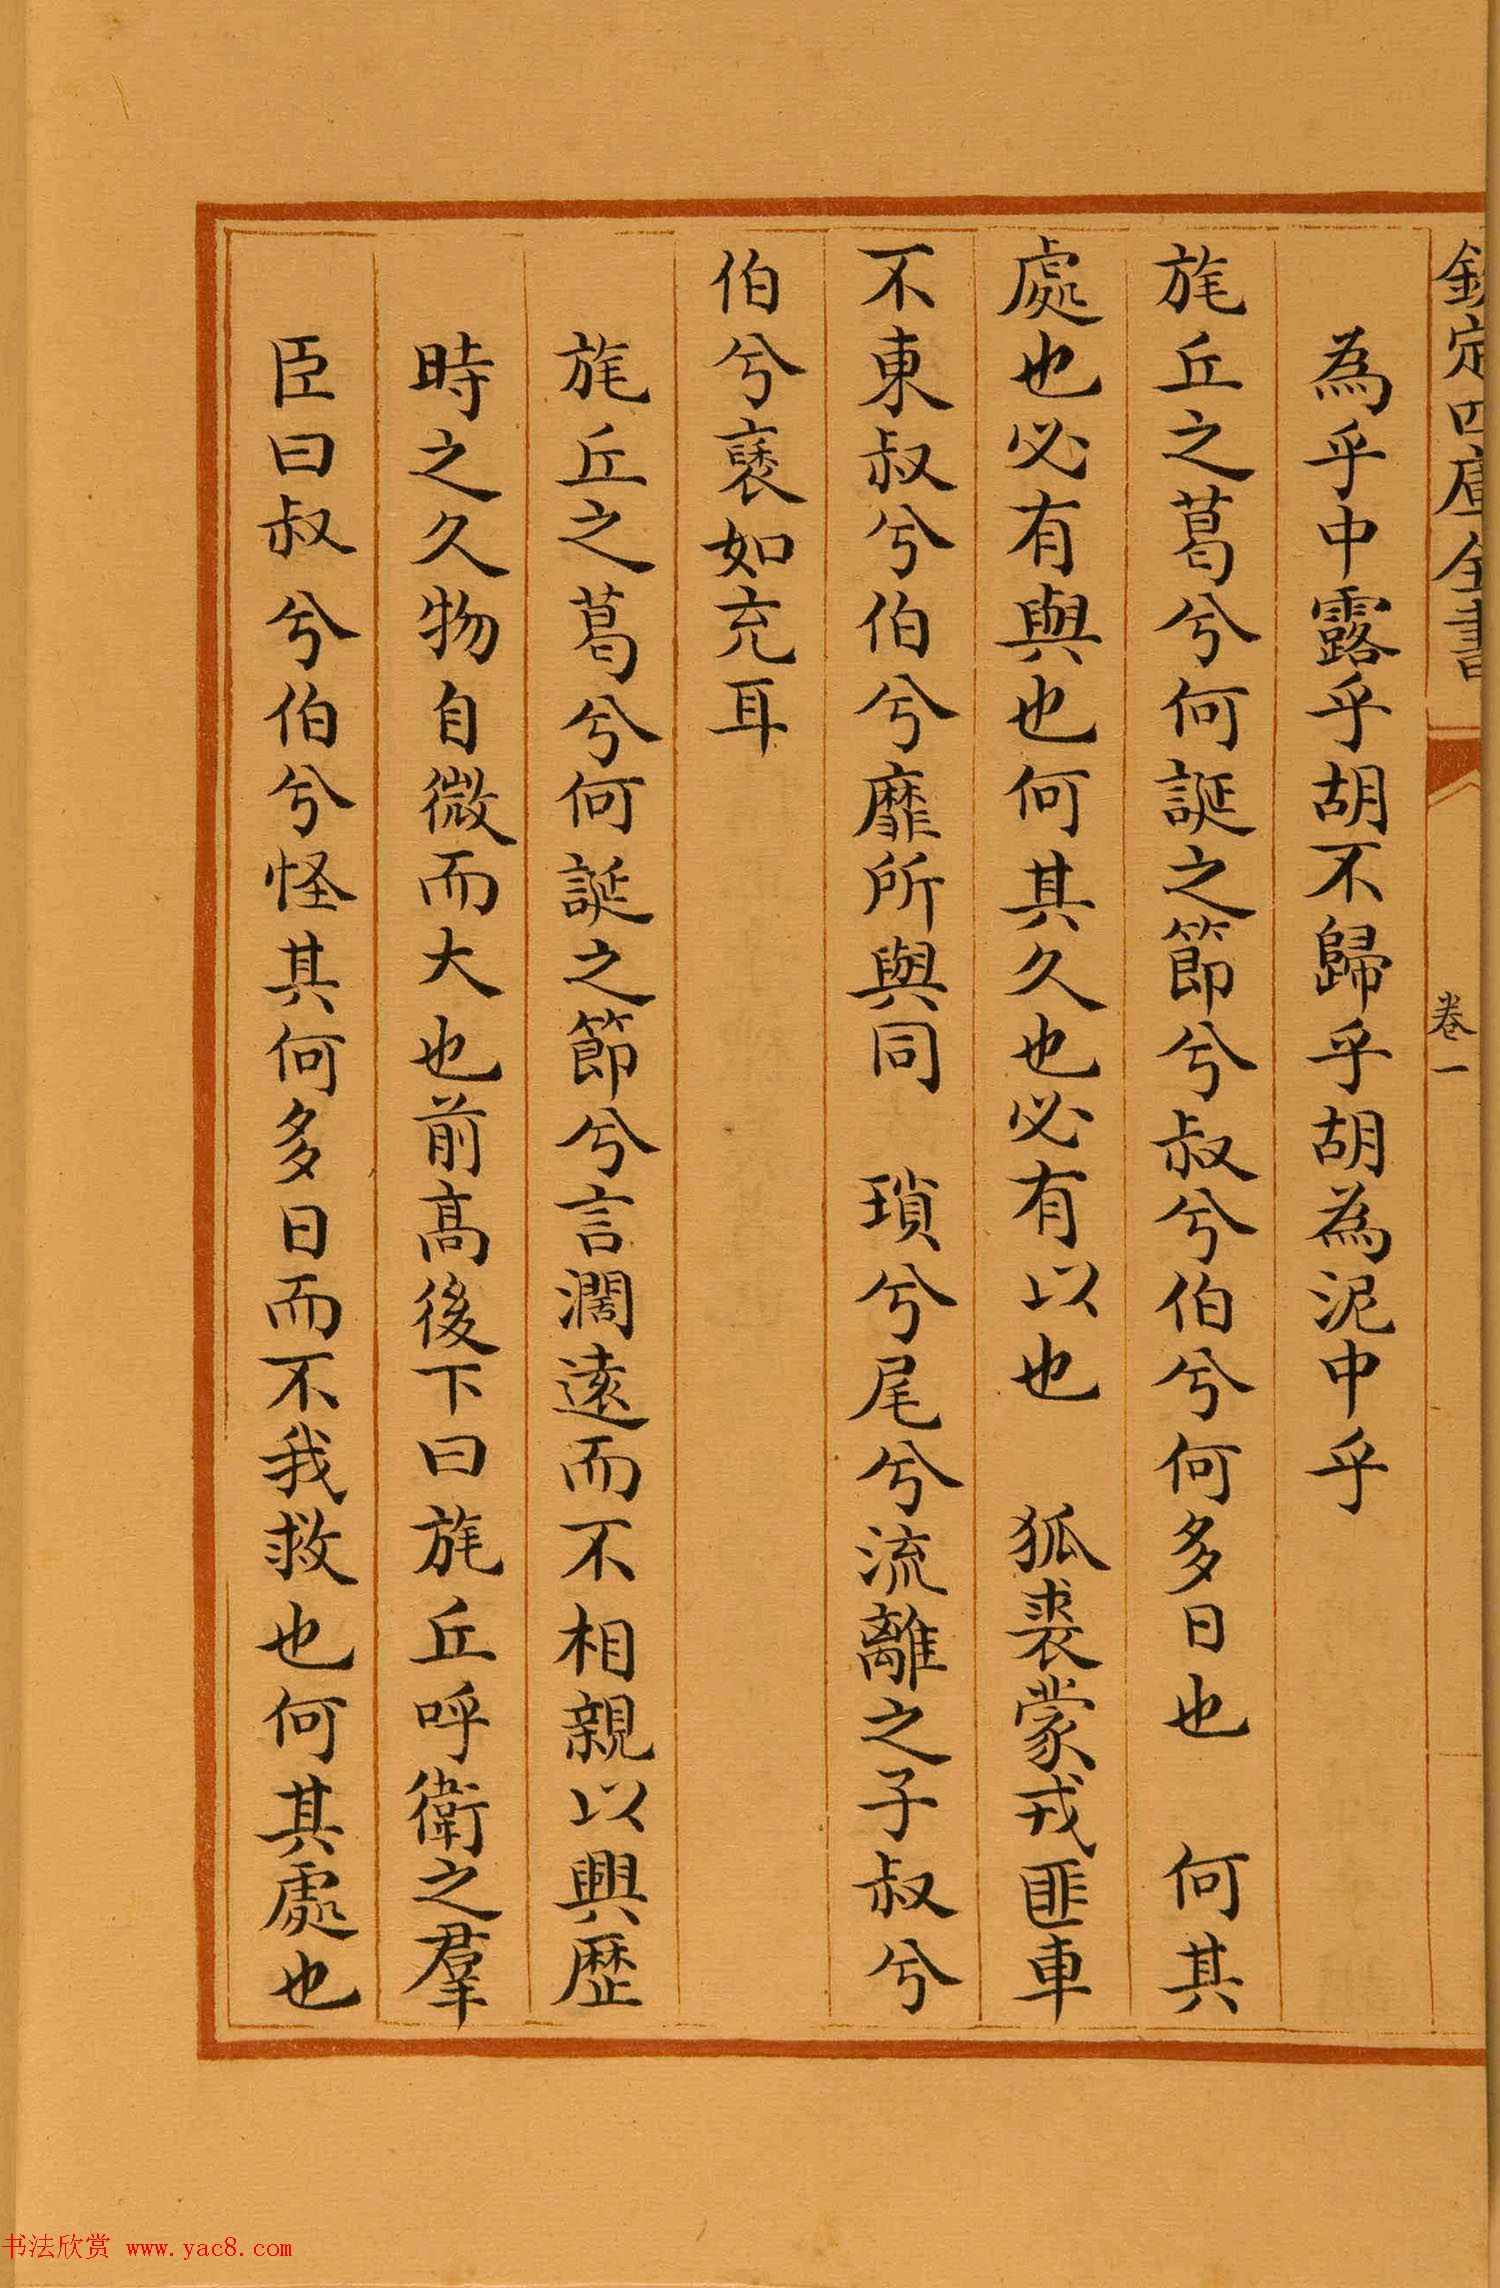 欽定四庫全書
卷一
為乎中露乎胡不歸乎胡為泥中乎
旄丘之葛兮何誕之節兮叔兮伯兮何多日也　何其
處也必有與也何其久也必有以也　狐裘蒙戎匪車
不東叔兮伯兮靡所與同　瑣兮尾兮流離之子叔兮
伯兮褎如充耳
旄丘之葛兮何誕之節兮言濶遠而不相親以興歷
時之久物自微而大也前高後下曰旄丘呼衛之羣
臣曰叔兮伯兮怪其何多日而不我救也何其處也
书法欣赏 www.yac8.com